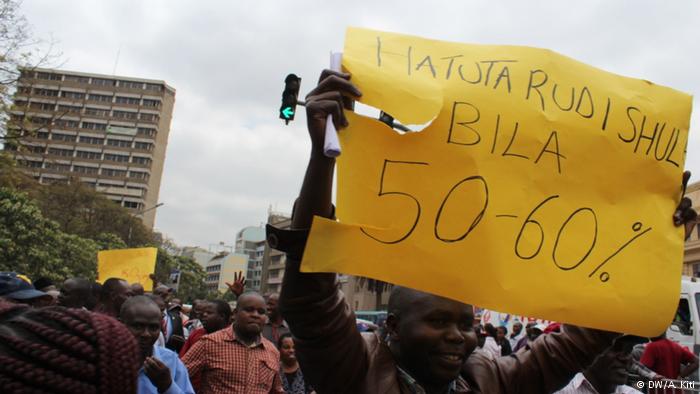 HATUTA RUDI SHUL
BILA
50-60%
50
© DW/A. Kiti